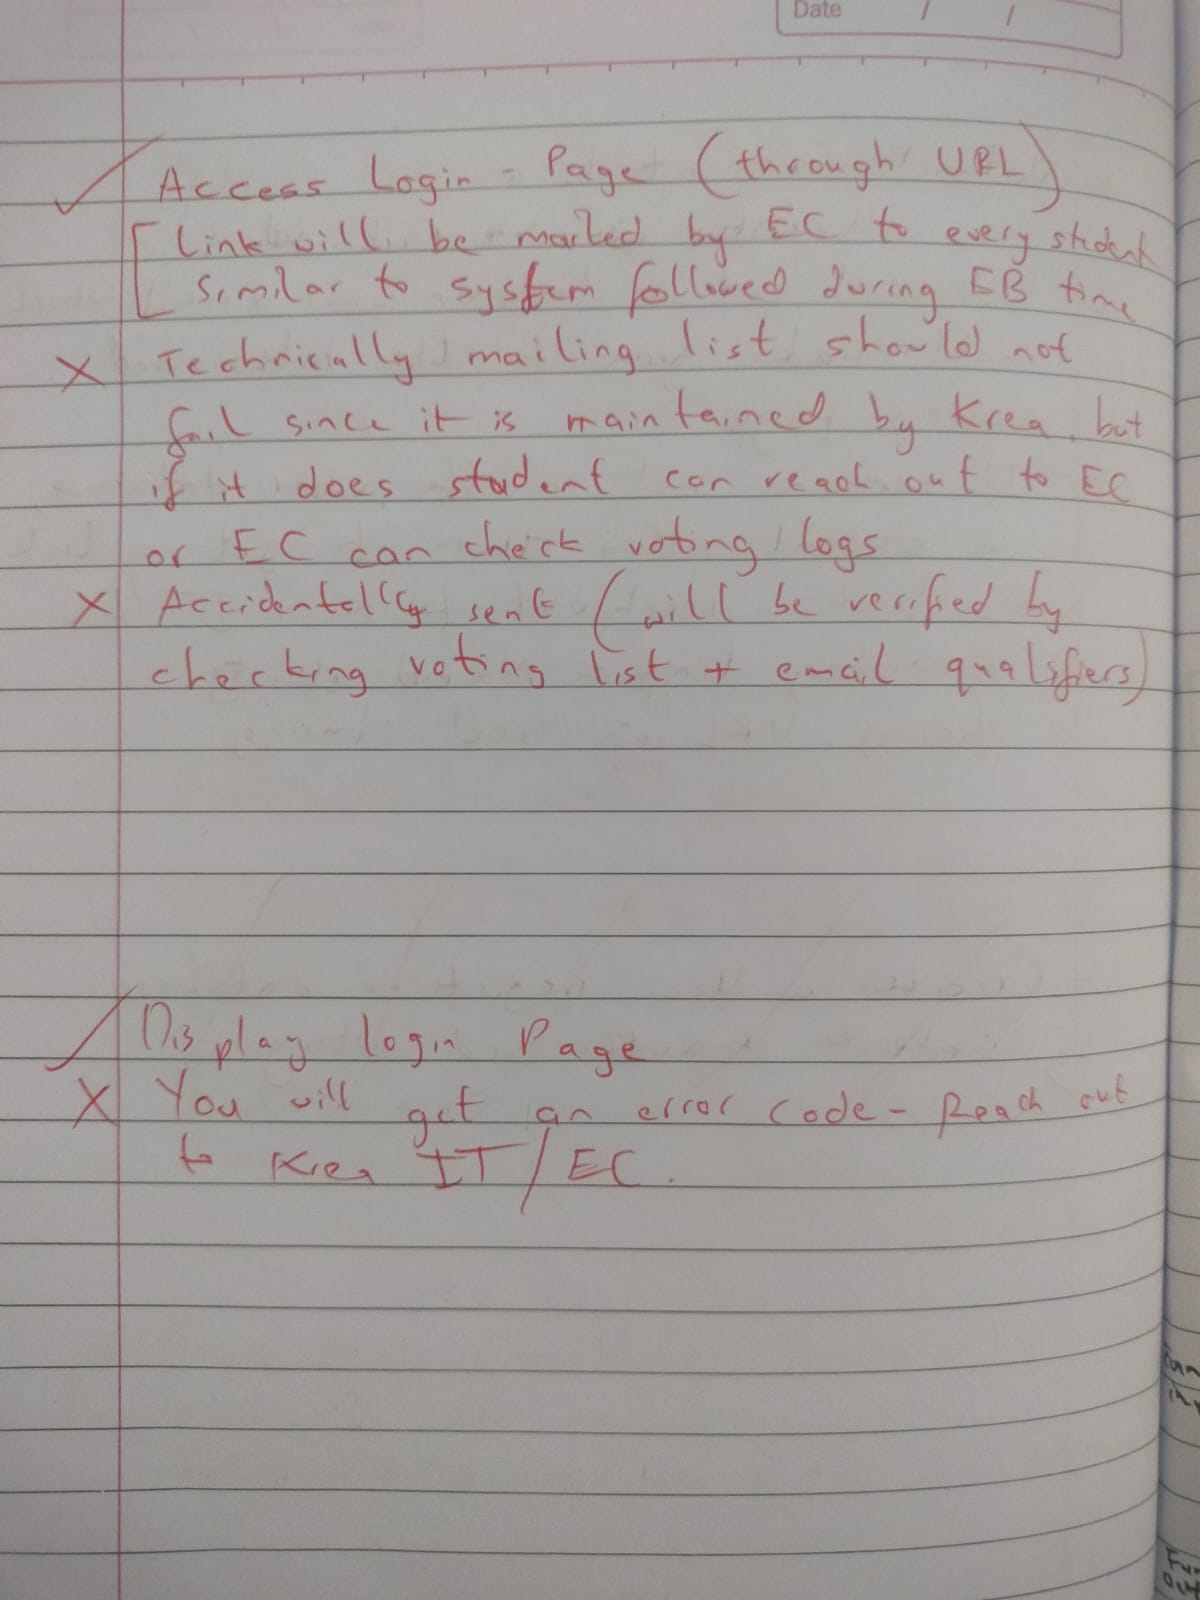 Date / /
✓ Access Login - Page (through URL)
[ Link will be mailed by EC to every student
similar to system followed during EB time
X Technically mailing list should not
fail since it is maintained by Krea, but
if it does student can reach out to EC
or EC can check voting logs
X Accidentally sent (will be verified by
checking voting list + email qualifiers)
✓ Display login Page
X You will get an error code - Reach out
to Krea IT/EC.